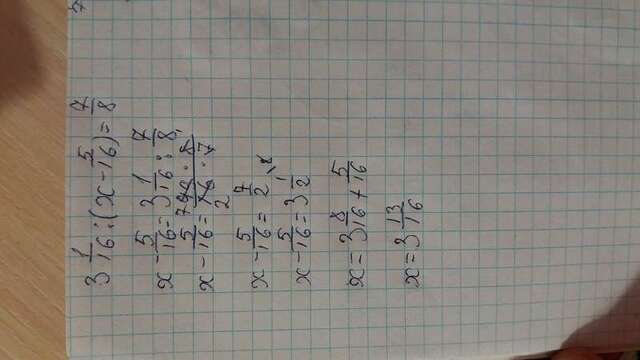 3 1/16 : (x - 5/16) = 7/8
x - 5/16 = 3 1/16 : 7/8
x - 5/16 = 7 49 · 8 1 / 2 16 · 7
x - 5/16 = 7/2
x - 5/16 = 3 1/2 \8
x = 3 8/16 + 5/16
x = 3 13/16